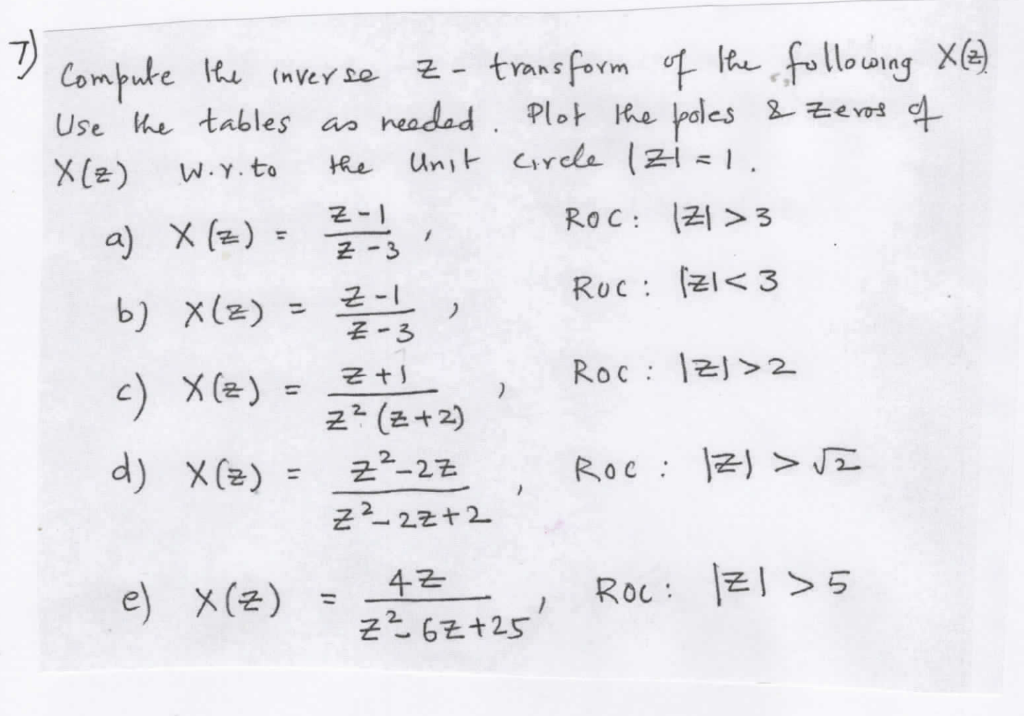 7) Compute the inverse z - transform of the following X(z)
Use the tables as needed. Plot the poles & zeros of
X(z) w.r.to the Unit Circle |z| = 1.
a) X(z) = z-1 / z-3 , ROC: |z| > 3
b) X(z) = z-1 / z-3 , ROC: |z| < 3
c) X(z) = z+1 / z² (z+2) , ROC: |z| > 2
d) X(z) = z²-2z / z²-2z+2 , ROC: |z| > √2
e) X(z) = 4z / z²-6z+25 , ROC: |z| > 5